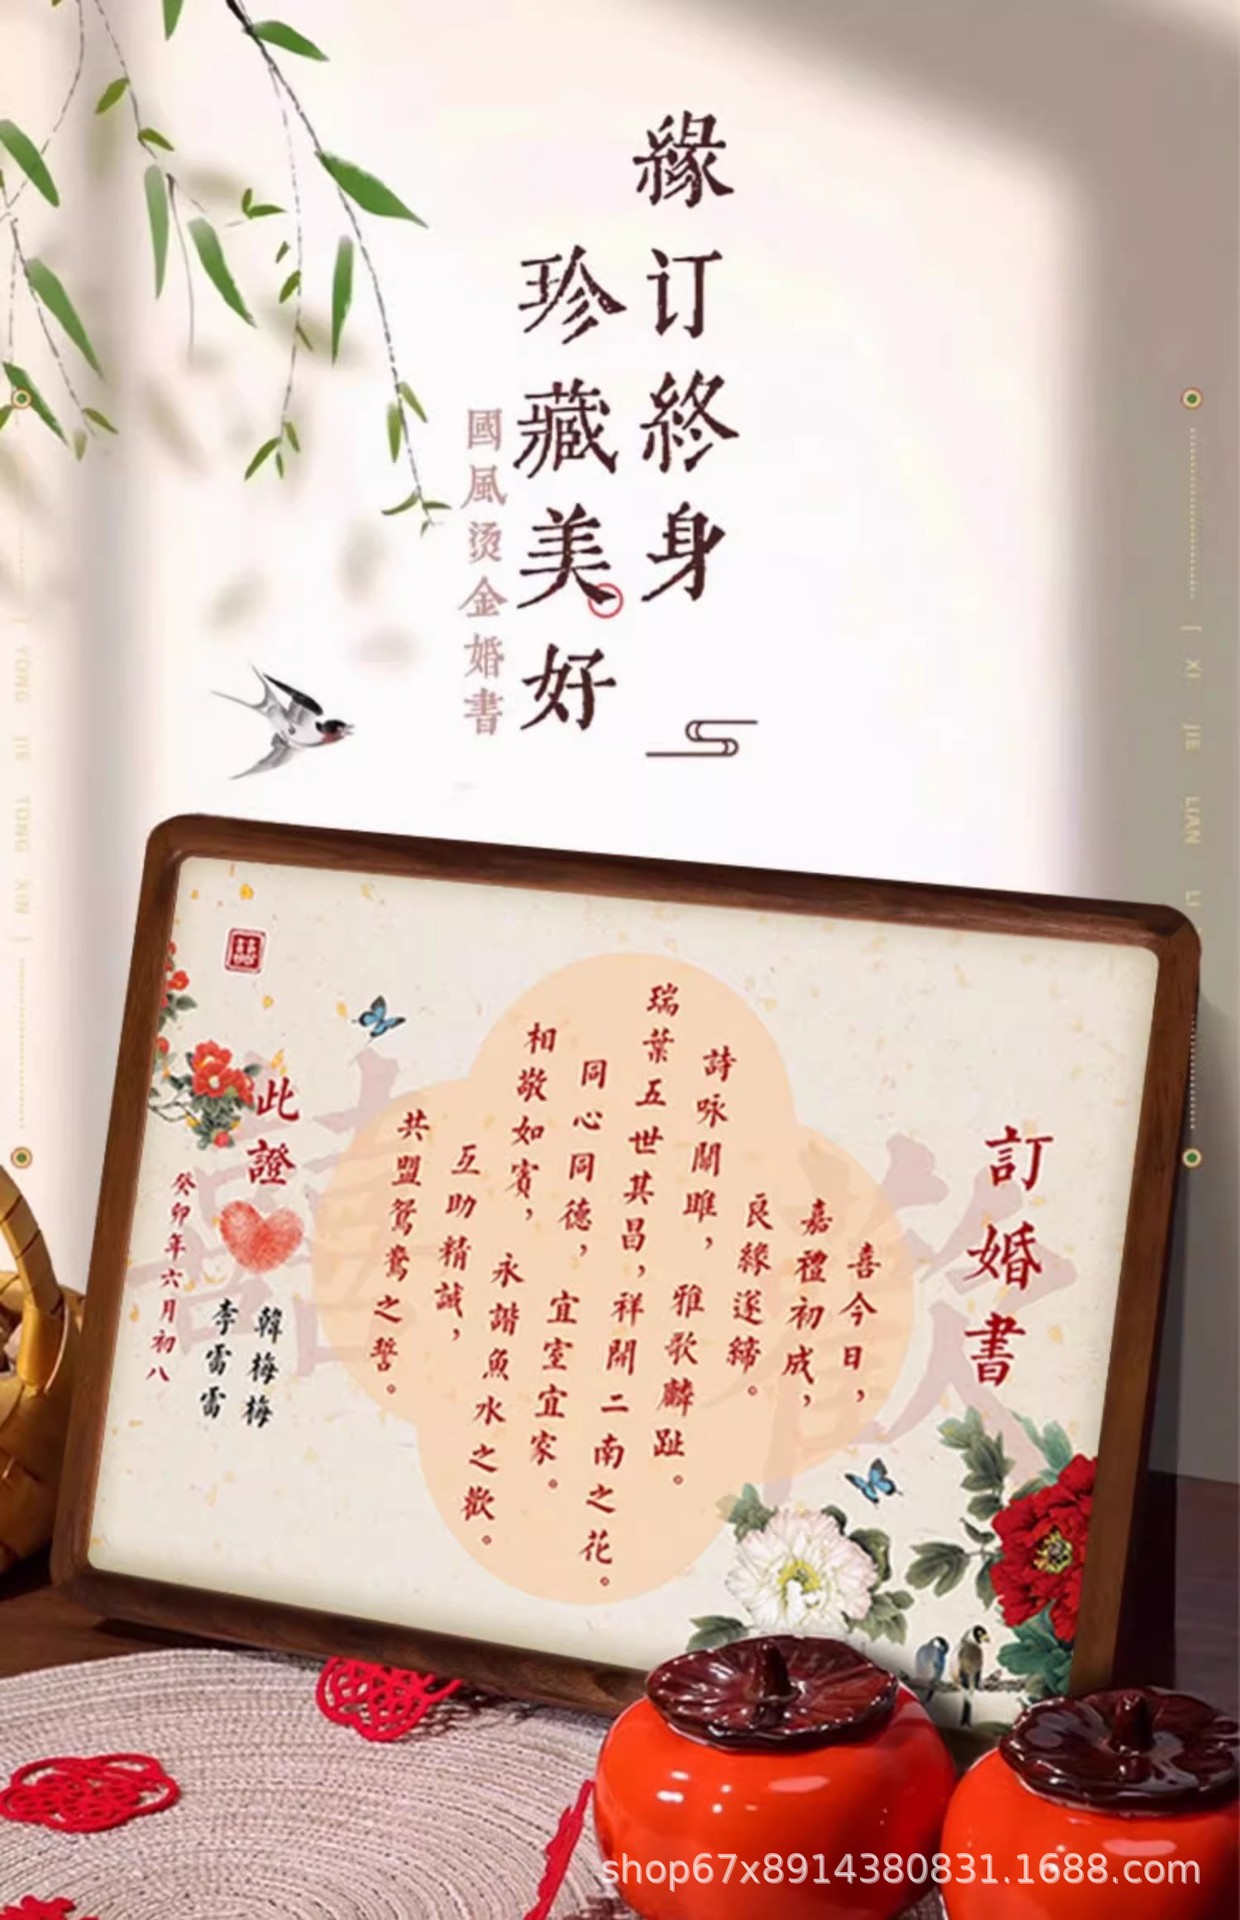 緣订終身
珍藏美好
國風烫金婚書
[ YONG JIE TONG XIN ]
[ XI JIE LIAN LI
訂婚書
喜今日，
嘉禮初成，
良緣遂締。
詩咏關雎，雅歌麟趾。
瑞葉五世其昌，祥開二南之花。
同心同德，宜室宜家。
相敬如賓，永諧魚水之歡。
互助精誠，
共盟鴛鴦之誓。
此證
韓梅梅
李雷雷
癸卯年六月初八
囍
歡
囍
shop67x8914380831.1688.com